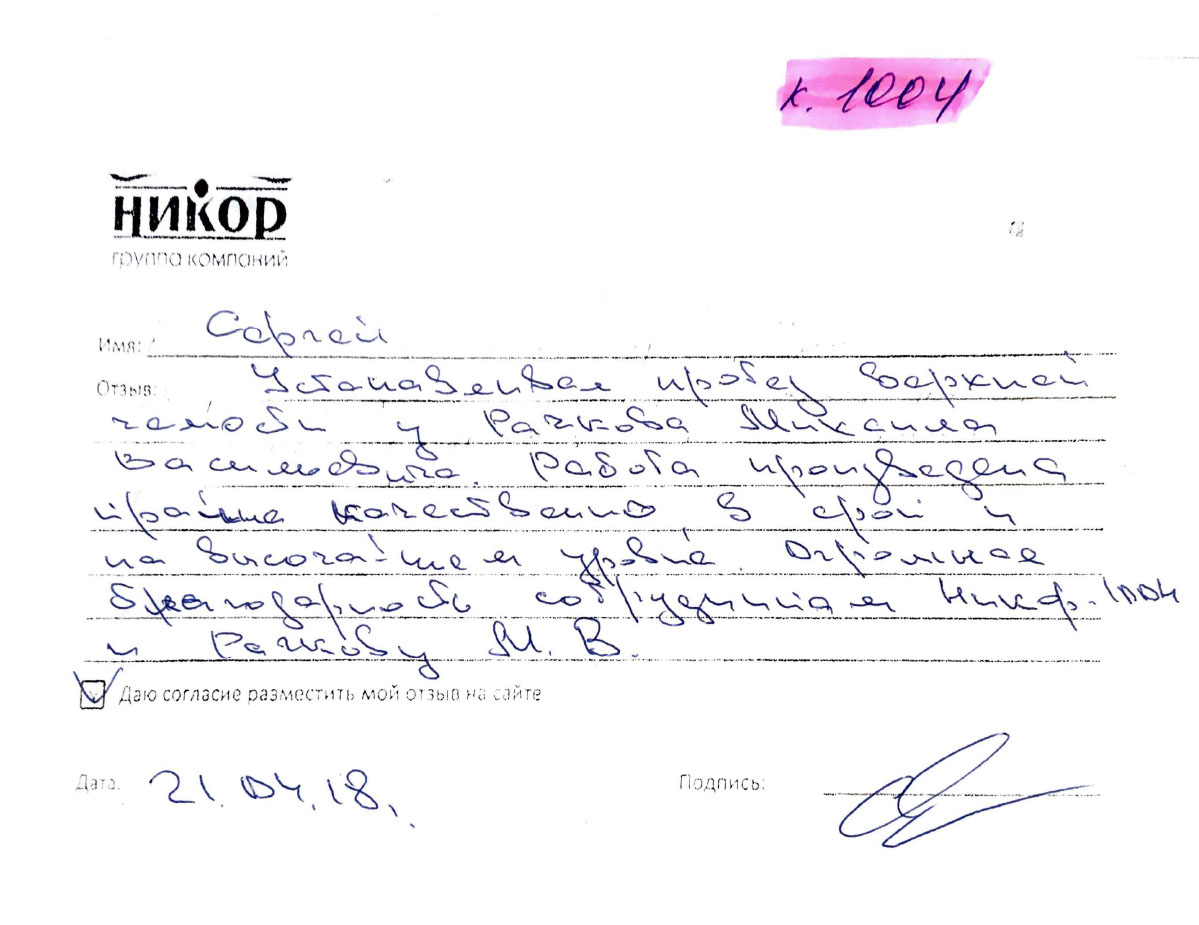 к. 1004
НИКОР
группа компаний
Имя: Сергей
Отзыв: Устанавливал протез верхней
челюсти у Рачкова Михаила
Васильевича. Работа произведена
крайне качественно, в срок и
на высочайшем уровне. Огромная
благодарность сотрудникам Никор-1004
и Рачкову М. В.
Даю согласие разместить мой отзыв на сайте
Дата: 21.04.18.
Подпись: